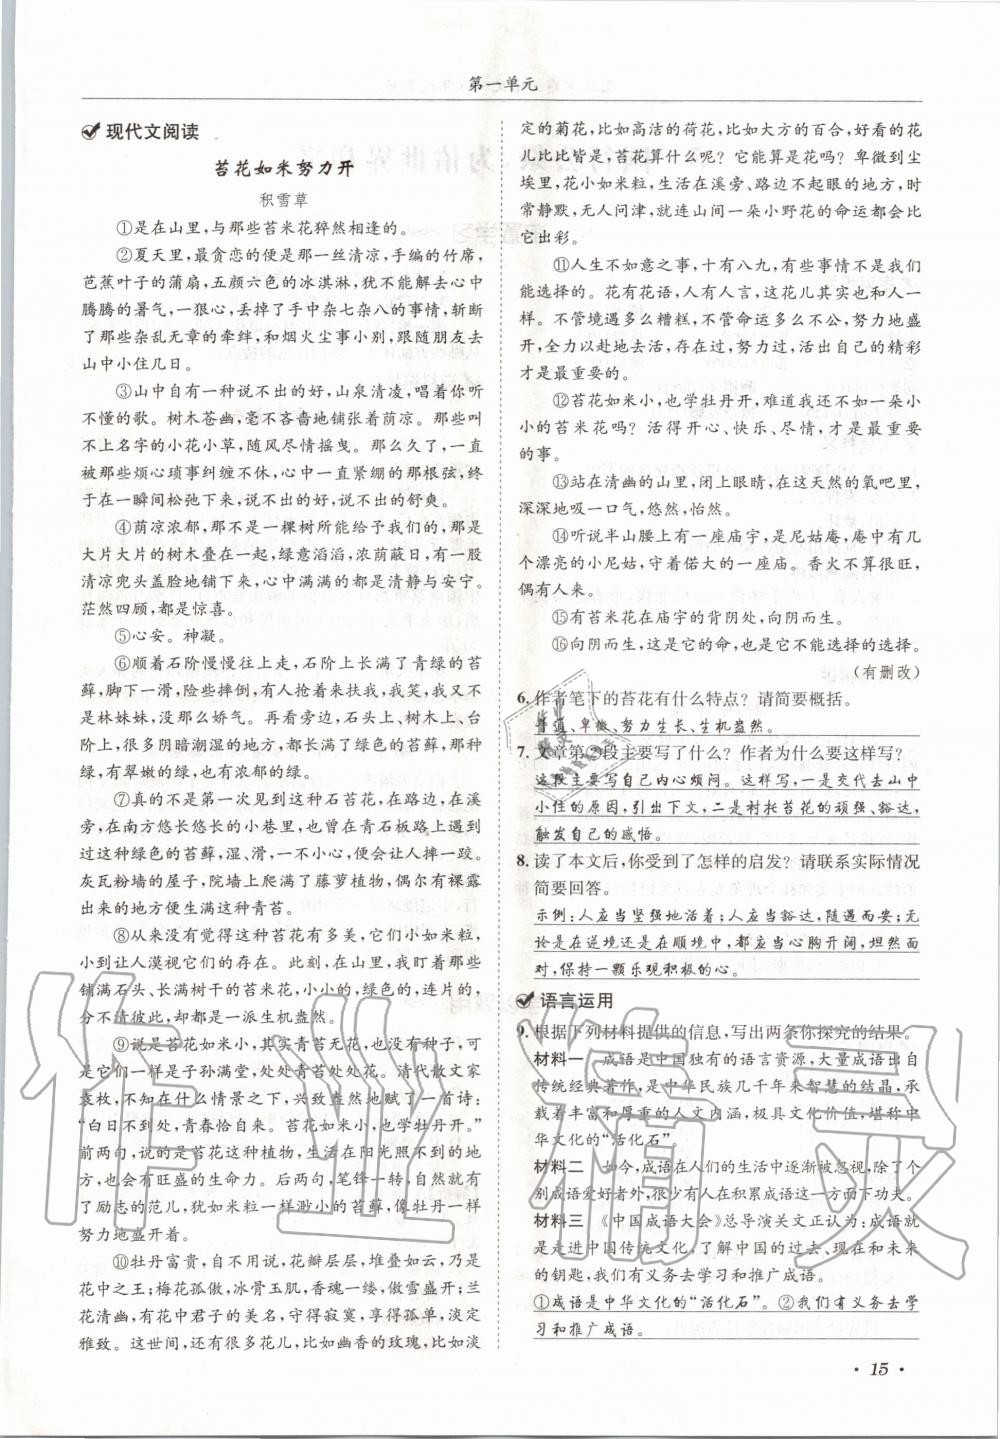 第一单元
现代文阅读
苔花如米努力开
积雪草
①是在山里,与那些苔米花猝然相逢的。
②夏天里,最贪恋的便是那一丝清凉,手编的竹席,
芭蕉叶子的蒲扇,五颜六色的冰淇淋,犹不能解去心中
腾腾的暑气,一狠心,丢掉了手中杂七杂八的事情,斩断
了那些杂乱无章的牵绊,和烟火尘事小别,跟随朋友去
山中小住几日。
③山中自有一种说不出的好,山泉清凌,唱着你听
不懂的歌。树木苍幽,毫不吝啬地铺张着荫凉。那些叫
不上名字的小花小草,随风尽情摇曳。那么久了,一直
被那些烦心琐事纠缠不休,心中一直紧绷的那根弦,终
于在一瞬间松弛下来,说不出的舒爽。
④荫凉浓郁,那不是一棵树所能给予我们的,那是
大片大片的树木叠在一起,绿意滔滔,浓荫蔽日,有一股
清凉兜头盖脸地铺下来,心中满满的都是清静与安宁。
茫然四顾,都是惊喜。
⑤心安。神凝。
⑥顺着石阶慢慢往上走,石阶上长满了青绿的苔
藓,脚下一滑,险些摔倒,有人抢着来扶我,我笑,我又不
是林妹妹,没那么娇气。再看旁边,石头上、树木上、台
阶上,很多阴暗潮湿的地方,都长满了绿色的苔藓,那种
绿,有翠嫩的绿,也有浓郁的绿。
⑦真的不是第一次见到这种石苔花,在路边,在溪
旁,在南方悠长悠长的小巷里,也曾在青石板路上遇到
过这种绿色的苔藓,湿、滑,一不小心,便会让人摔一跤。
灰瓦粉墙的屋子,院墙上爬满了藤萝植物,偶尔有裸露
出来的地方便生满这种青苔。
⑧从来没有觉得这种苔花有多美,它们小如米粒,
小到让人漠视它们的存在。此刻,在山里,我盯着那些
铺满石头、长满树干的苔米花,小小的,绿色的,连片的,
安分彼此,却都是一派生机盎然。
⑨说是苔花如米小,其实青苔无花,也没有种子,可
是它们一样是子孙满堂,处处青苔处处花。清代散文家
袁枚,不知在什么情景之下,兴致盎然地赋了一首诗:
“白日不到处,青春恰自来。苔花如米小,也学牡丹开。”
前两句,说的是苔花这种植物,生活在阳光照不到的地
方,也会有旺盛的生命力。后两句,笔锋一转,自然就有
了励志的范儿,犹如米粒一样渺小的苔藓,像牡丹一样
努力地盛开着。
⑩牡丹富贵,自是国色天香,花瓣层层,堆叠如云,乃是
花中之王;梅花孤傲,冰骨玉肌,香魂一缕,傲雪盛开;兰
花清幽,有花中君子的美名,守得寂寞,享得孤单,淡定
雅致。这世间,还有很多花儿,比如幽香的玫瑰,比如淡
定的菊花,比如高洁的荷花,比如大方的百合,好看的花
儿比比皆是,苔花算什么呢?它能算是花吗?卑微到尘
埃里,花小如米粒,生活在溪旁、路边不起眼的地方,时
常静默,无人问津,就连山间一朵小野花的命运都会比
它出彩。
⑪人生不如意之事,十有八九,有些事情不是我们
能选择的。花有花语,人有人言,这花儿其实也和人一
样。不管境遇多么糟糕,不管命运多么不公,努力地盛
开,全力以赴地去活,存在过,努力过,活出自己的精彩
才是最重要的。
⑫苔花如米小,也学牡丹开,难道我还不如一朵小
小的苔米花吗?活得开心、快乐、尽情,才是最重要
的事。
⑬站在清幽的山里,闭上眼睛,在这天然的氧吧里,
深深地吸一口气,悠然,怡然。
⑭听说半山腰上有一座庙宇,是尼姑庵,庵中有几
个漂亮的小尼姑,守着偌大的一座庙。香火不算很旺,
偶有人来。
⑮有苔米花在庙宇的背阴处,向阴而生。
⑯向阴而生,这是它的命,也是它不能选择的选择。
(有删改)
6. 作者笔下的苔花有什么特点?请简要概括。
普通、卑微、努力生长、生机盎然。
7. 文章第②段主要写了什么?作者为什么要这样写?
这段主要写自己内心烦闷。这样写,一是交代去山中
小住的原因,引出下文,二是衬托苔花的顽强、豁达,
触发自己的感悟。
8. 读了本文后,你受到了怎样的启发?请联系实际情况
简要回答。
示例:人应当坚强地活着;人应当豁达,随遇而安;无
论是在逆境还是在顺境中,都应当心胸开阔,坦然面
对,保持一颗乐观积极的心。
语言运用
9. 根据下列材料提供的信息,写出两条你探究的结果。
材料一 成语是中国独有的语言资源,大量成语出自
传统经典著作,是中华民族几千年来智慧的结晶,承
载着丰富和厚重的人文内涵,极具文化价值,堪称中
华文化的“活化石”。
材料二 如今,成语在人们的生活中逐渐被忽视,除了个
别成语爱好者外,很少有人在积累成语这一方面下功夫。
材料三 《中国成语大会》总导演关文正认为:成语就
是走进中国传统文化,了解中国的过去、现在和未来
的钥匙,我们有义务去学习和推广成语。
①成语是中华文化的“活化石”。②我们有义务去学
习和推广成语。
· 15 ·
作业精灵